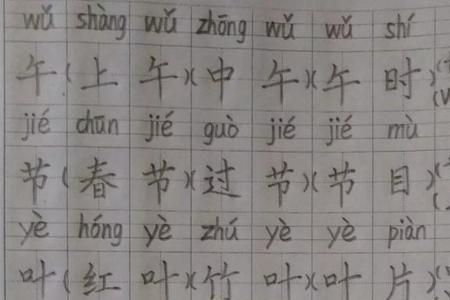 wǔ shàng wǔ zhōng wǔ wǔ shí
午(上午)(中午)(午时)
jié chūn jié guò jié jié mù
节(春节)(过节)(节目)
yè hóng yè zhú yè yè piàn
叶(红叶)(竹叶)(叶片)